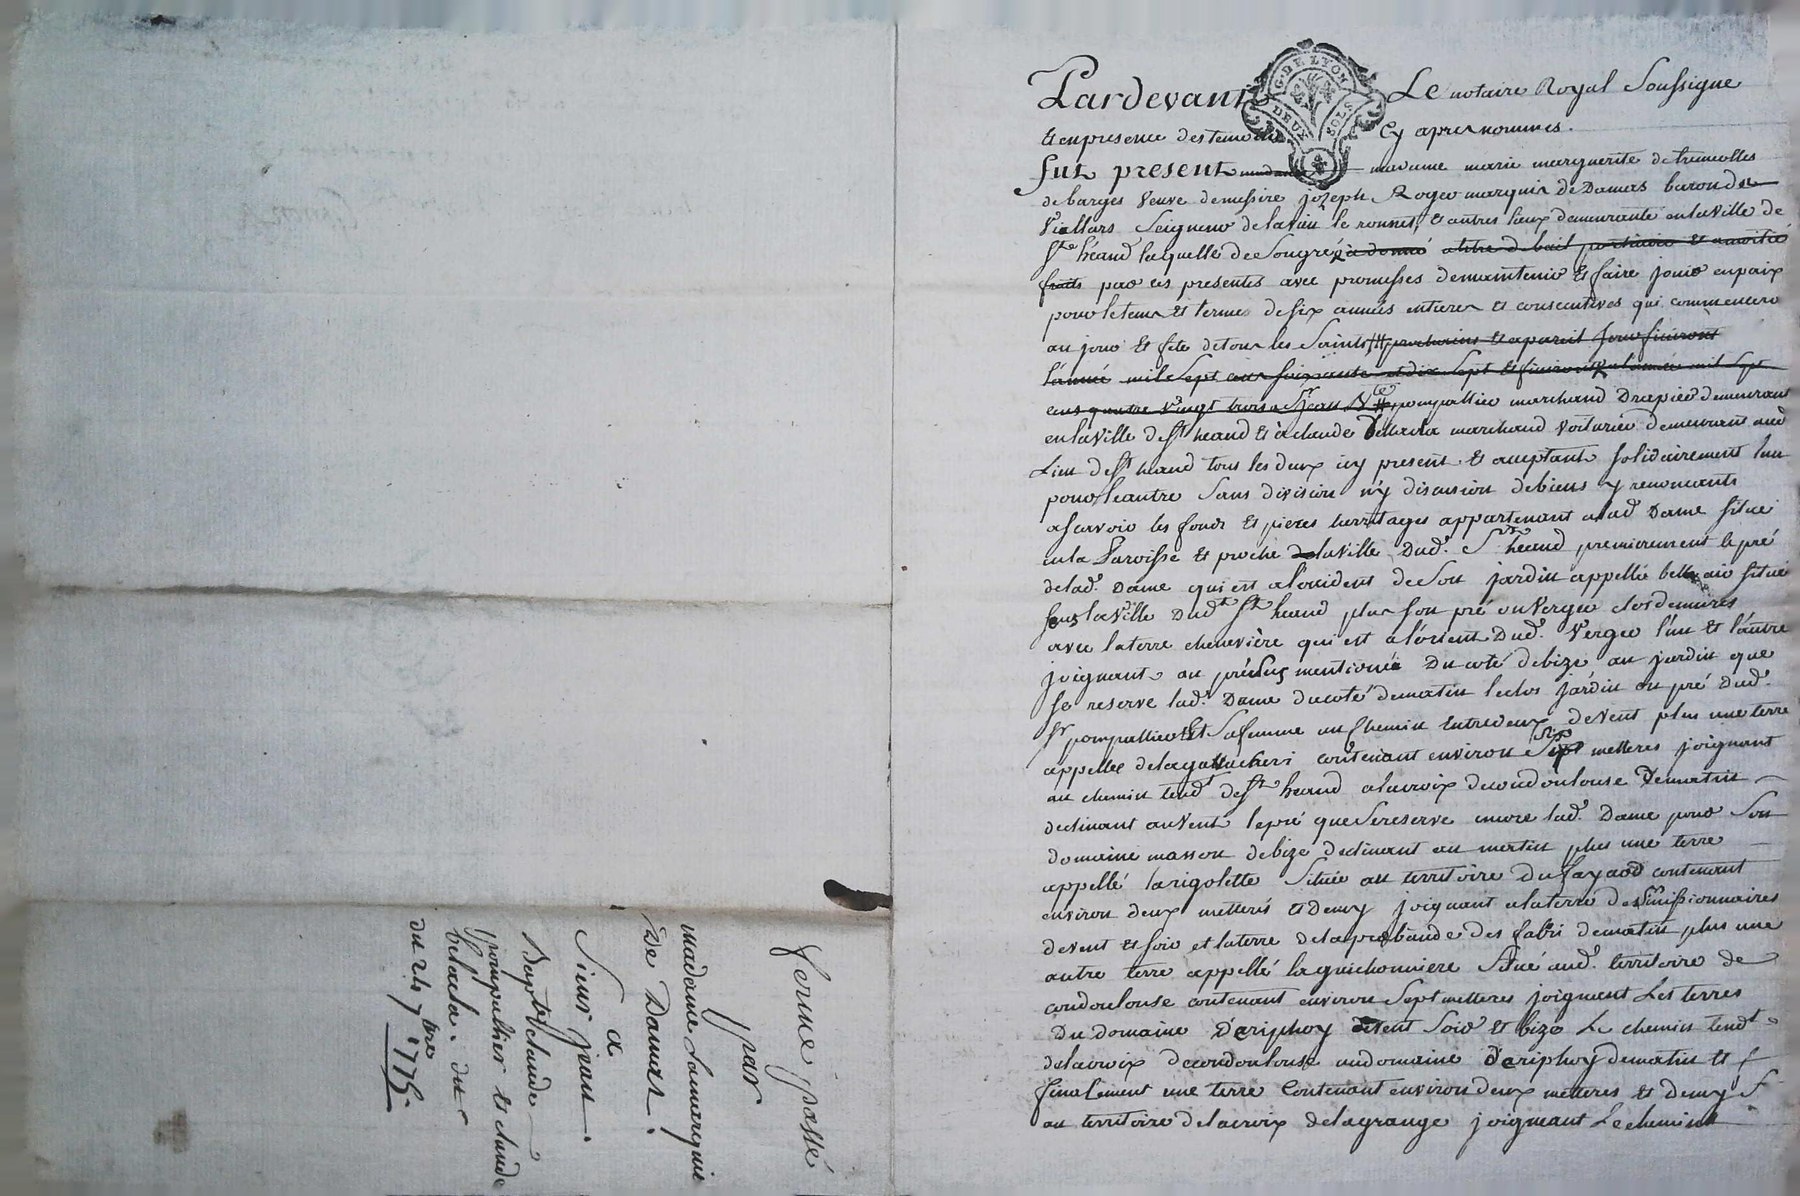 G. DE LYON
DEUX SOLS
Pardevant Le notaire Royal Soussigne
Et en presence des temoins Cy apres nommes.
fut present madame marie marguerite de tremolles
de barges Veuve de messire jozeph Roger marquis de Damas baron du
Viallars Seigneur de la Vaü le ronnet, et autres lieux demeurante en la Ville de
St. héand laquelle de Son gré à donné a titre de bail et a moitié
fruits par ces presentes avec promesses de maintenir Et faire jouir en paix
pour le tems Et termes de six années entieres et consecutives qui commencero
au jour Et fête de tous les Saints prochains Et a pareil Jour finiront
l'année mil Sept cens soixante et dix Sept Et finiront l'année mil Sept
cens quatre Vingt trois a Sr jean Bte pompallier marchand Drapier demeurant
en la Ville de St heand Et à claude Belacla marchand Voiturier demeurant aud
Lieu de St heand tous les deux icy present Et acceptant solidairement l'un
pour l'autre Sans division n'y discusion de biens y renoncants
a scavoir les fonds Et pieces heritages appartenant a lad. Dame situé
en la Paroisse Et proche de la Ville Dud. St heand premierement le pré
de lad. Dame qui est a l'occident de Son jardin appellé bel air situé
sous la Ville Dud. St heand plus son pré ou Verger clos de mures
avec la terre chenevière qui est a l'orient Dud. Verger l'un Et l'autre
joignant au pré sus mentionné Du coté de bize au jardin que
se reserve lad. Dame du coté de matin le clos jardin ou pré Dud.
Sr pompallier Et Sa femme un Chemin entredeux de Vent plus une terre
appellée de la contenant environ Six metteres joignant
au chemin tendt de St heand a la croix de coudoulouse De matin
declinant au Vent le pré que Se reserve encore lad. Dame pour Son
domaine masson de bize declinant au matin plus une terre
appellé la rigolette Située au territoire du fayaod contenant
environ deux metterés Et Demy joignant a la terre des Srs missionnaires
de vent Et soir et la terre de la prebande des fabri de matin plus une
autre terre appellé la guichonniere Situé aud. territoire de
coudoulouse contenant environ Sept metteres joignant Les terres
Du domaine D'eriphoy de vent Soir Et bize Le chemin tendt
de la croix de coudoulouse au domaine D'eriphoy de matin Et
finalement une terre Contenant environ deux metteres Et Demy
au territoire de la croix de la grange joignant Le chemin
ferme passée
par
madame La marquise
De Damas.
a
Sieur jean
Baptte
pompallier Et claude
belacla. du
du 24 7bre 1775